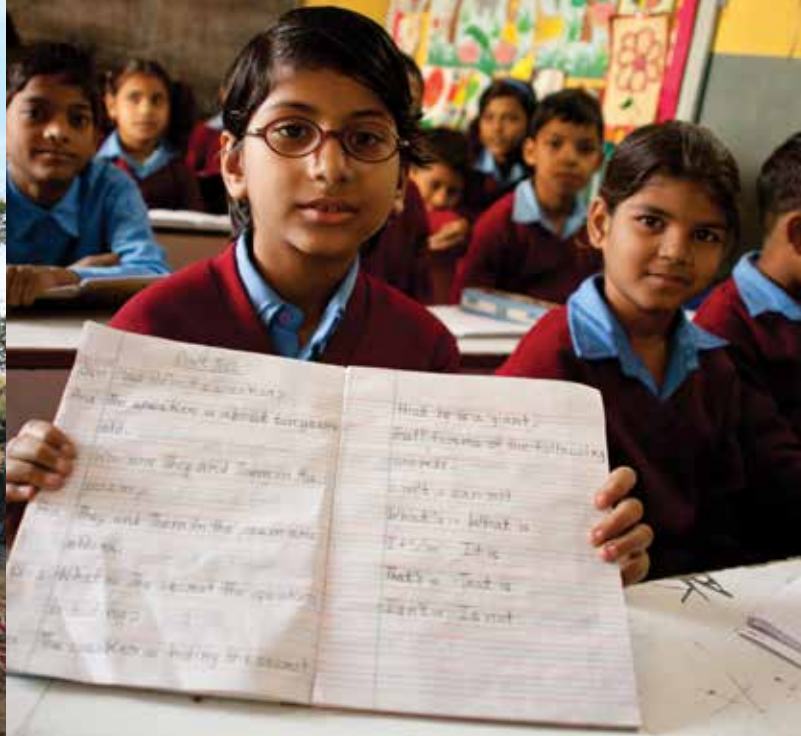 speaker
Ans The speaker is about ten years
old.
Who are They and Them in the
poem?
They and Them in the poem are
What is the secret the speaker
The speaker is hiding the secret
that he is a giant.
Full forms of the following
words.
Can't = can not
What's = What is
It's = It is
That's = That is
Isn't = Is not